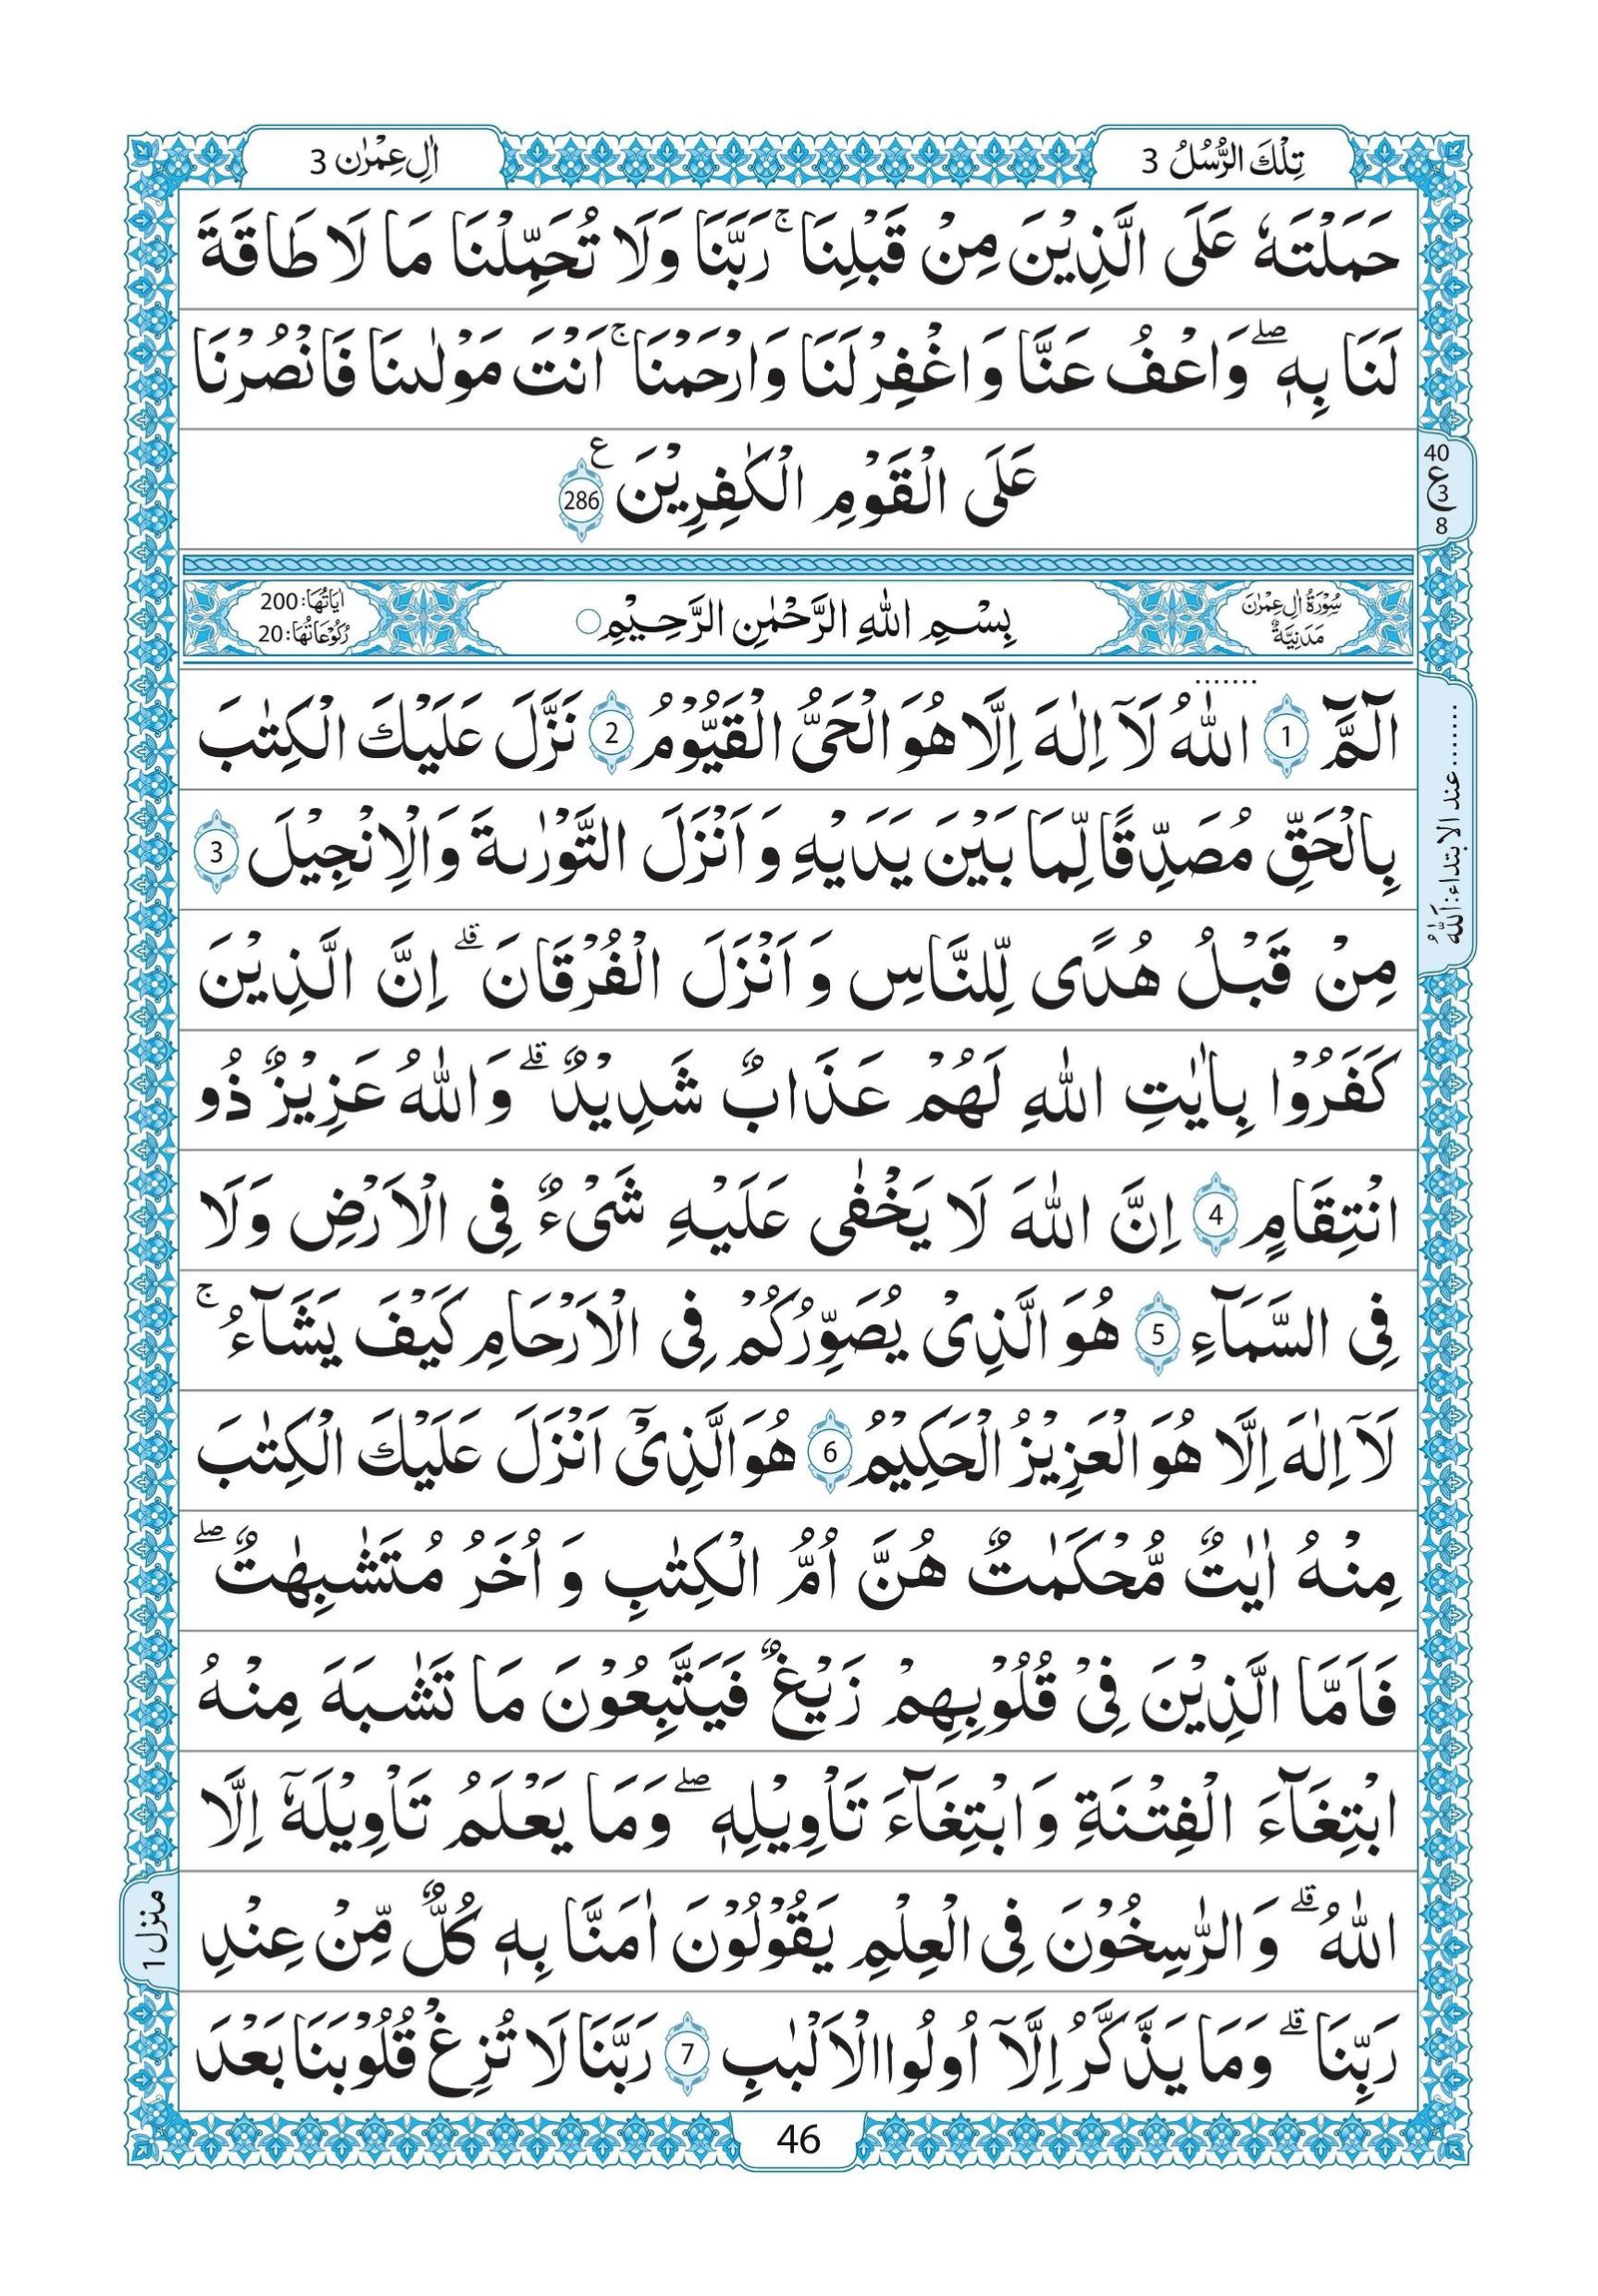 تِلْكَ الرُّسُلُ 3
اٰلِ عِمْرٰن 3
حَمَلْتَهٗ عَلَى الَّذِيْنَ مِنْ قَبْلِنَا ۚ رَبَّنَا وَلَا تُحَمِّلْنَا مَا لَا طَاقَةَ
لَنَا بِهٖ ۖ وَاعْفُ عَنَّا وَاغْفِرْ لَنَا وَارْحَمْنَا ۚ اَنْتَ مَوْلٰىنَا فَانْصُرْنَا
عَلَى الْقَوْمِ الْكٰفِرِيْنَ ع 286
40
ع 3
8
سُوْرَةُ اٰلِ عِمْرٰنَ
مَدَنِيَّةٌ
بِسْمِ اللّٰهِ الرَّحْمٰنِ الرَّحِيْمِ○
اٰيَاتُهَا: 200
رُكُوْعَاتُهَا: 20
الٓمّٓ 1 اللّٰهُ لَآ اِلٰهَ اِلَّا هُوَ الْحَىُّ الْقَيُّوْمُ 2 نَزَّلَ عَلَيْكَ الْكِتٰبَ
بِالْحَقِّ مُصَدِّقًا لِّمَا بَيْنَ يَدَيْهِ وَاَنْزَلَ التَّوْرٰىةَ وَالْاِنْجِيْلَ 3
مِنْ قَبْلُ هُدًى لِّلنَّاسِ وَاَنْزَلَ الْفُرْقَانَ ۗ اِنَّ الَّذِيْنَ
كَفَرُوْا بِاٰيٰتِ اللّٰهِ لَهُمْ عَذَابٌ شَدِيْدٌ ۗ وَاللّٰهُ عَزِيْزٌ ذُو
انْتِقَامٍ 4 اِنَّ اللّٰهَ لَا يَخْفٰى عَلَيْهِ شَىْءٌ فِى الْاَرْضِ وَلَا
فِى السَّمَآءِ 5 هُوَ الَّذِىْ يُصَوِّرُكُمْ فِى الْاَرْحَامِ كَيْفَ يَشَآءُ ۚ
لَآ اِلٰهَ اِلَّا هُوَ الْعَزِيْزُ الْحَكِيْمُ 6 هُوَ الَّذِىْٓ اَنْزَلَ عَلَيْكَ الْكِتٰبَ
مِنْهُ اٰيٰتٌ مُّحْكَمٰتٌ هُنَّ اُمُّ الْكِتٰبِ وَاُخَرُ مُتَشٰبِهٰتٌ ۖ
فَاَمَّا الَّذِيْنَ فِىْ قُلُوْبِهِمْ زَيْغٌ فَيَتَّبِعُوْنَ مَا تَشٰبَهَ مِنْهُ
ابْتِغَآءَ الْفِتْنَةِ وَابْتِغَآءَ تَاْوِيْلِهٖ ۖ وَمَا يَعْلَمُ تَاْوِيْلَهٗٓ اِلَّا
اللّٰهُ ۗ وَالرّٰسِخُوْنَ فِى الْعِلْمِ يَقُوْلُوْنَ اٰمَنَّا بِهٖ كُلٌّ مِّنْ عِنْدِ
رَبِّنَا ۗ وَمَا يَذَّكَّرُ اِلَّآ اُولُوا الْاَلْبٰبِ 7 رَبَّنَا لَا تُزِغْ قُلُوْبَنَا بَعْدَ
....... عند الابتداء: اَللّٰهُ
منزل 1
46